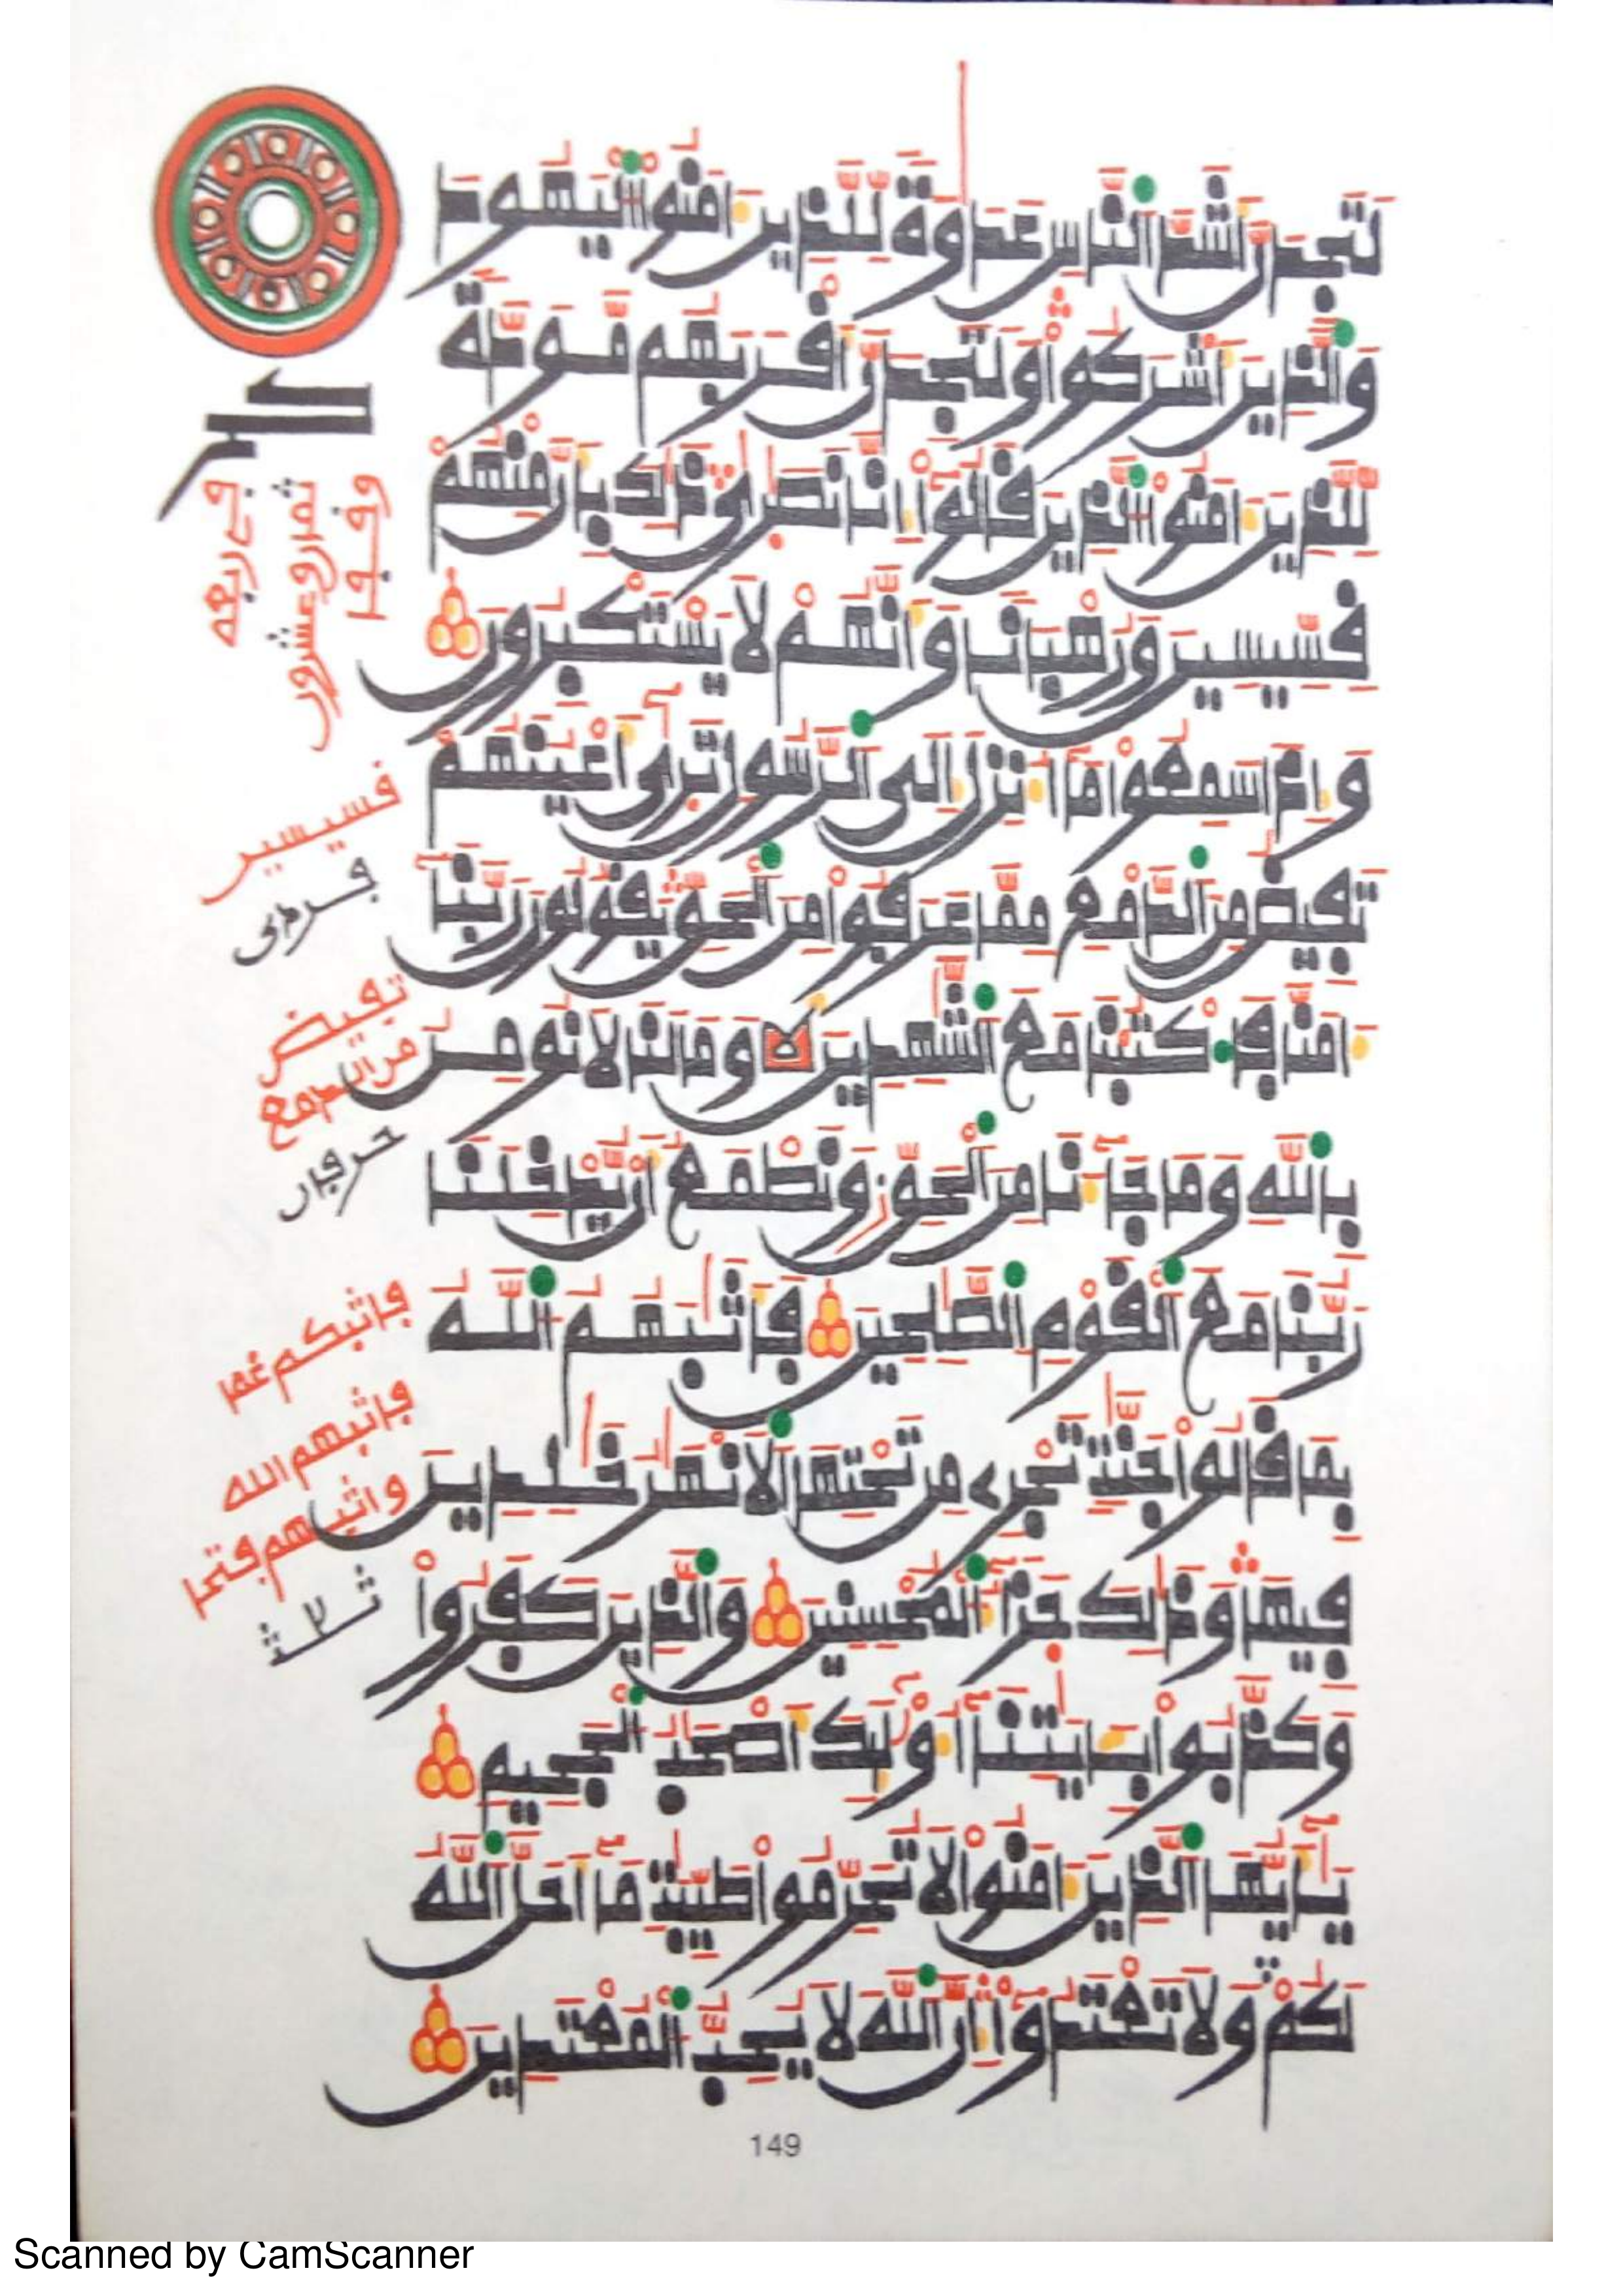 لَتَجِدَنَّ أَشَدَّ النَّاسِ عَدَاوَةً لِّلَّذِينَ ءَامَنُوا الْيَهُودَ
وَالَّذِينَ أَشْرَكُوا وَلَتَجِدَنَّ أَقْرَبَهُم مَّوَدَّةً
لِّلَّذِينَ ءَامَنُوا الَّذِينَ قَالُوا إِنَّا نَصَٰرَىٰ ذَٰلِكَ بِأَنَّ مِنْهُمْ
قِسِّيسِينَ وَرُهْبَانًا وَأَنَّهُمْ لَا يَسْتَكْبِرُونَ
وَإِذَا سَمِعُوا مَا أُنزِلَ إِلَى الرَّسُولِ تَرَىٰ أَعْيُنَهُمْ
تَفِيضُ مِنَ الدَّمْعِ مِمَّا عَرَفُوا مِنَ الْحَقِّ يَقُولُونَ رَبَّنَا
ءَامَنَّا فَاكْتُبْنَا مَعَ الشَّٰهِدِينَ وَمَا لَنَا لَا نُومِنُ
بِاللَّهِ وَمَا جَاءَنَا مِنَ الْحَقِّ وَنَطْمَعُ أَن يُدْخِلَنَا
رَبُّنَا مَعَ الْقَوْمِ الصَّٰلِحِينَ فَأَثَٰبَهُمُ اللَّهُ
بِمَا قَالُوا جَنَّٰتٍ تَجْرِي مِن تَحْتِهَا الْأَنْهَٰرُ خَٰلِدِينَ
فِيهَا وَذَٰلِكَ جَزَاءُ الْمُحْسِنِينَ وَالَّذِينَ كَفَرُوا
وَكَذَّبُوا بِـَٔايَٰتِنَا أُولَٰئِكَ أَصْحَٰبُ الْجَحِيمِ
يَٰأَيُّهَا الَّذِينَ ءَامَنُوا لَا تُحَرِّمُوا طَيِّبَٰتِ مَا أَحَلَّ اللَّهُ
لَكُمْ وَلَا تَعْتَدُوا إِنَّ اللَّهَ لَا يُحِبُّ الْمُعْتَدِينَ
قسيسين
فردى
تفيض
من الدمع
حرفان
فاثبكم غما
فاثبهم الله
واثبهم فتحا
ثلثة
149
Scanned by CamScanner